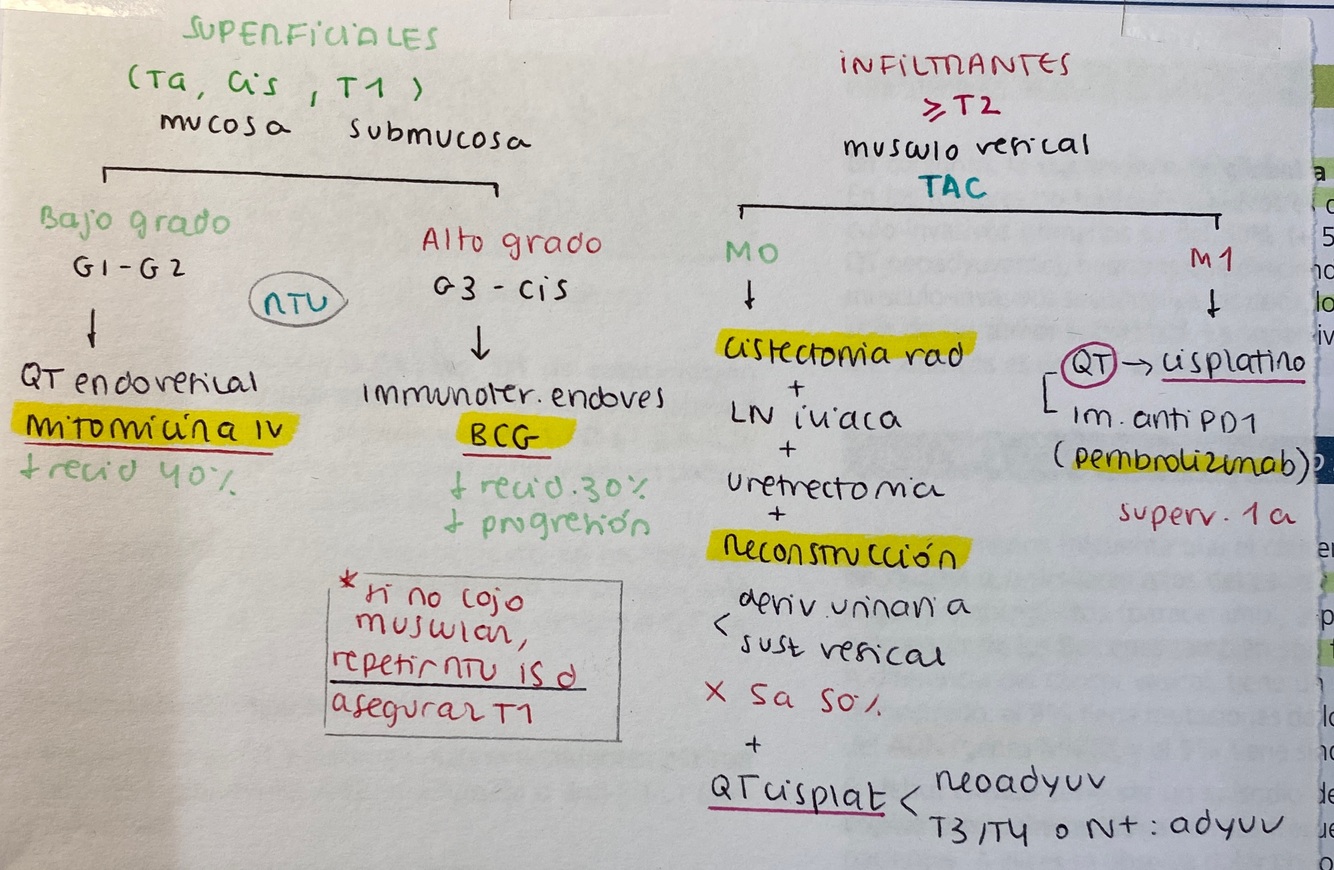 SUPERFICIALES
(Ta, Cis, T1)
mucosa submucosa
Bajo grado
G1-G2
QT endovesical
Mitomicina IV
↓ recid 40%
RTU
Alto grado
G3 - cis
Immunoter. endoves
BCG
↓ recid. 30%
↓ progresión
* si no cojo
muscular,
repetir RTU 15 d
asegurar T1
INFILTRANTES
≥ T2
musculo vesical
TAC
M0
cistectomia rad
+
LN iliaca
+
uretrectomia
+
Reconstrucción
< deriv. urinaria
sust vesical
x 5a 50%
+
QT cisplat < neoadyuv
T3/T4 o N+ : adyuv
M1
QT → cisplatino
im. anti PD1
(pembrolizumab)
superv. 1a